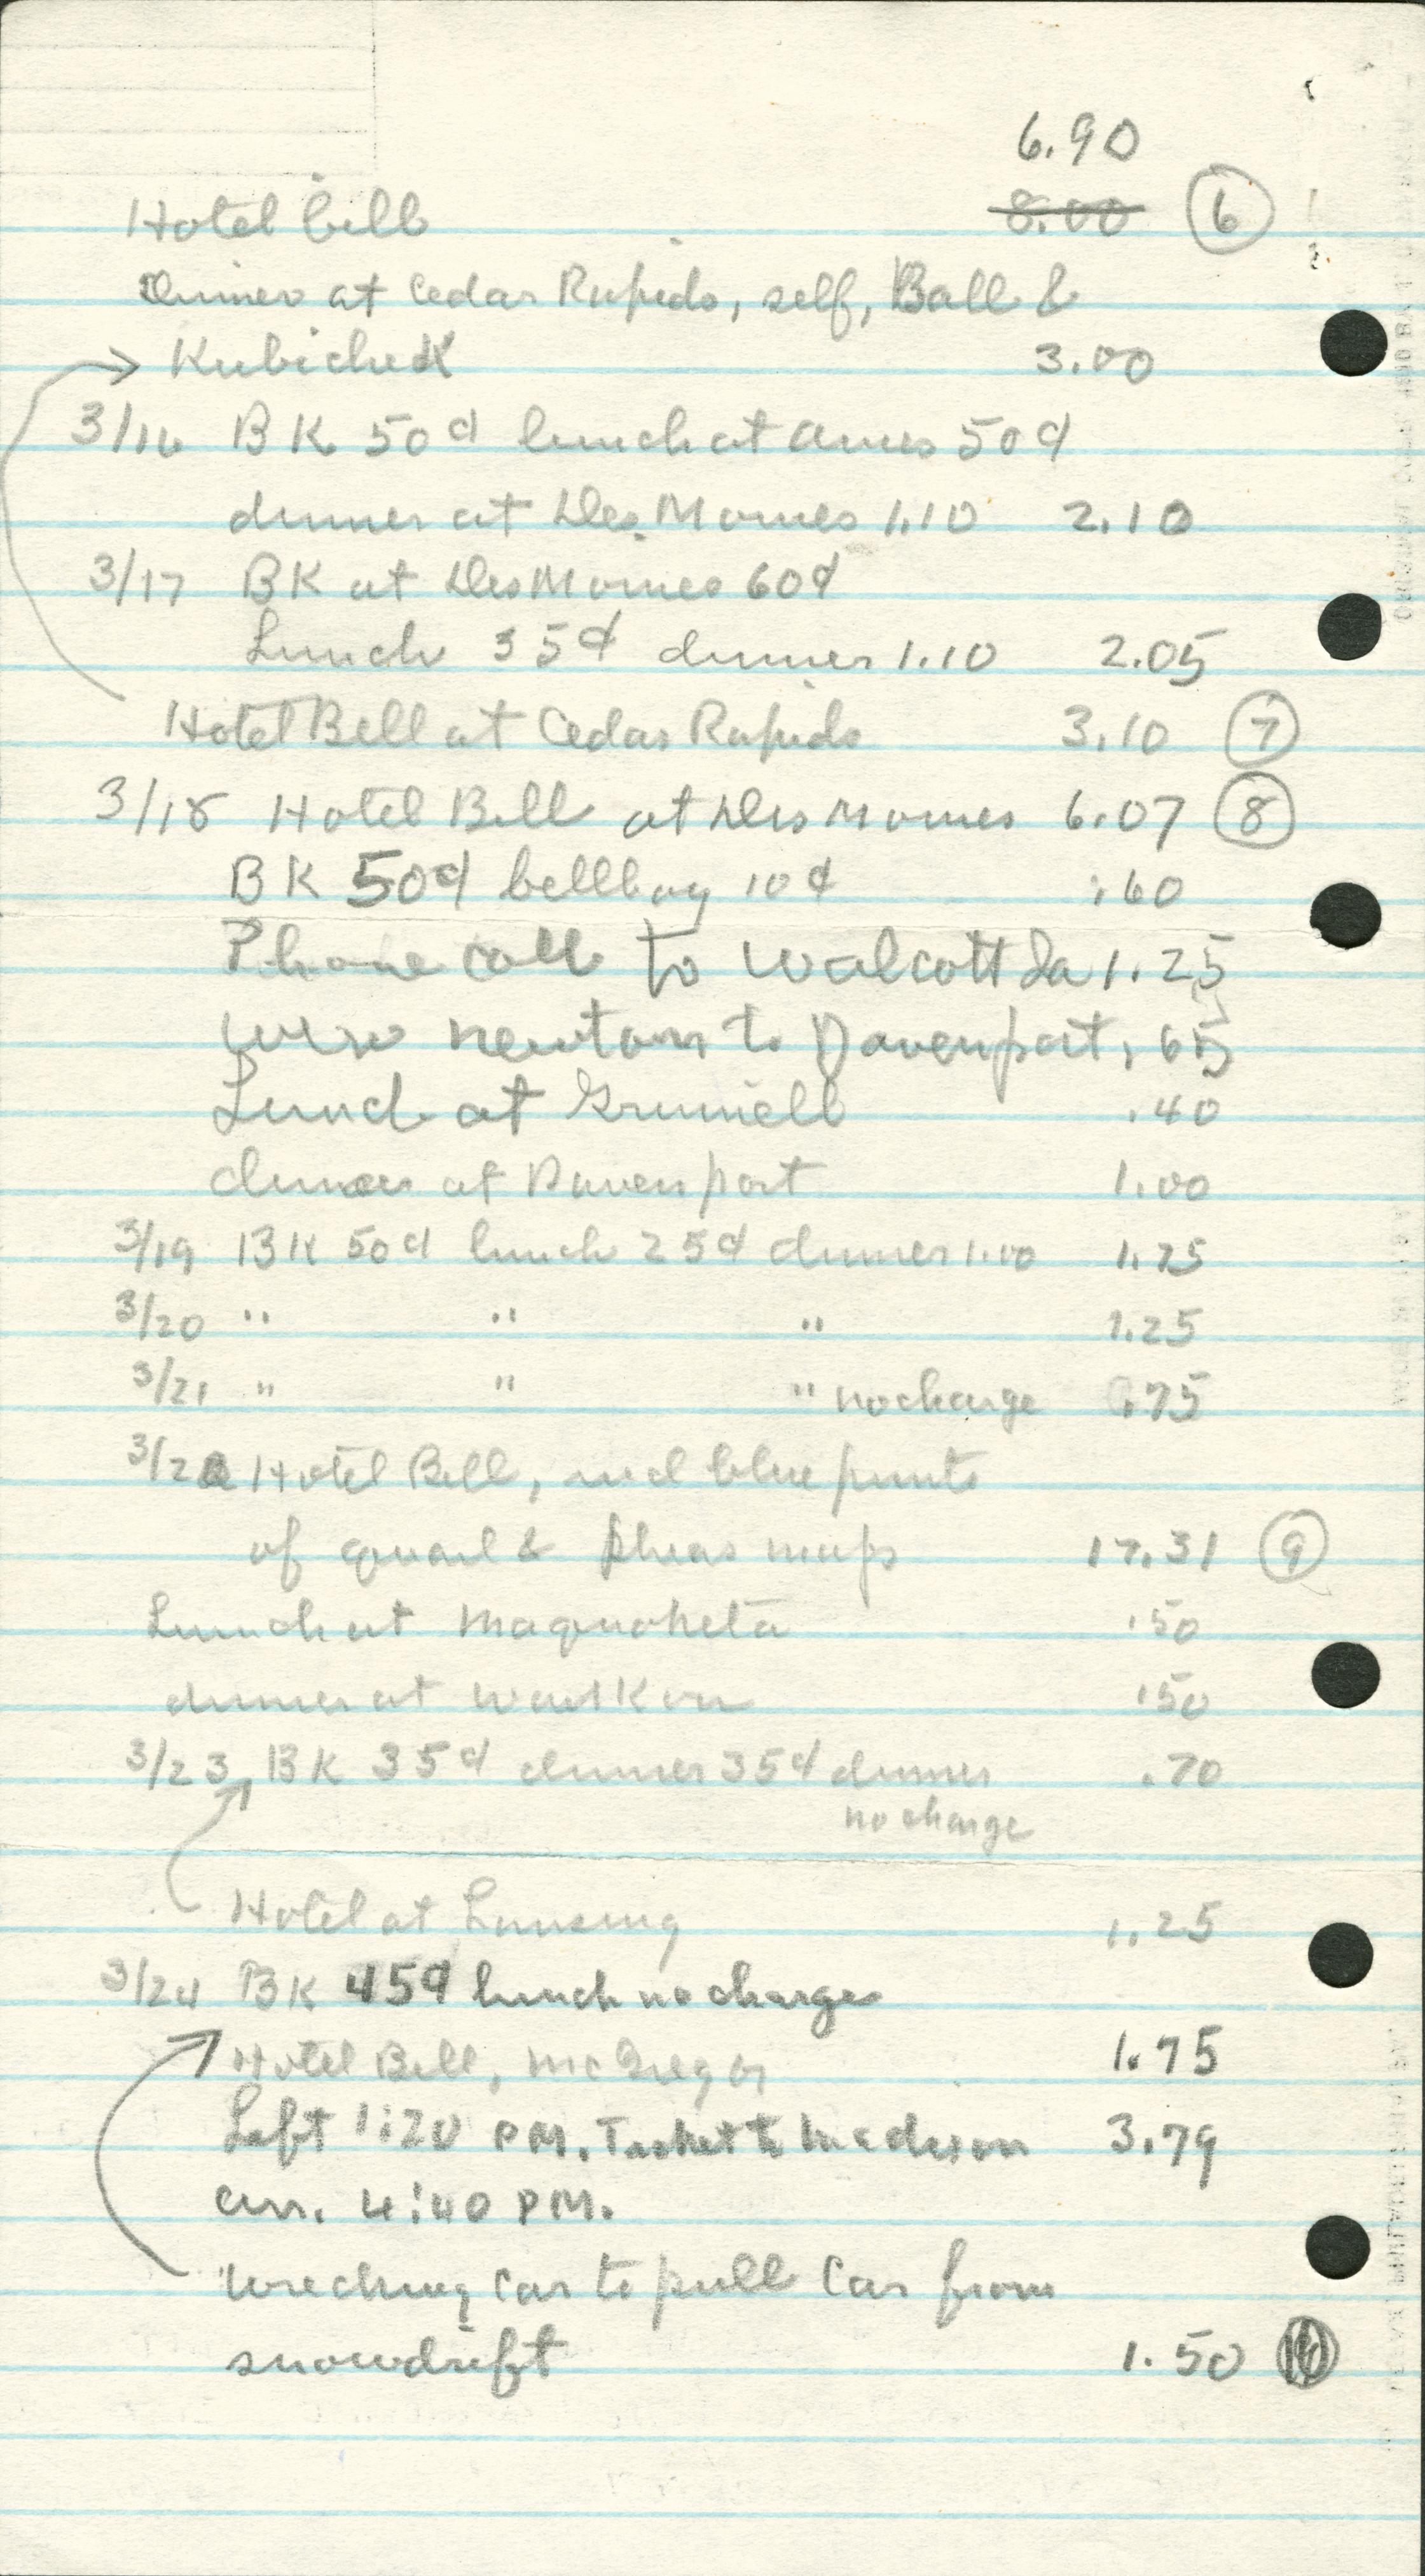 6.90
Hotel bill 8.00 6
Dinner at Cedar Rapids, self, Ball &
Kubichek 3.00
3/16 BK 50¢ lunch at Ames 50¢
dinner at Des Moines 1.10 2.10
3/17 BK at Des Moines 60¢
Lunch 35¢ dinner 1.10 2.05
Hotel Bill at Cedar Rapids 3.10 7
3/18 Hotel Bill at Des Moines 6.07 8
BK 50¢ bellboy 10¢ .60
Phone call to Walcott Ia 1.25
Wire Newton to Davenport .65
Lunch at Grinnell .40
dinner at Davenport 1.00
3/19 BK 50¢ lunch 25¢ dinner 1.00 1.75
3/20 " " " 1.25
3/21 " " " no charge .75
3/22 Hotel Bill, incl blue prints
of quail & pheas maps 17.31 9
Lunch at Maquoketa .50
dinner at Waukon .50
3/23 BK 35¢ dinner 35¢ dinner .70
no charge
Hotel at Lansing 1.25
3/24 BK 45¢ lunch no charge
Hotel Bill, McGregor 1.75
Left 1:20 PM. Ticket to Madison 3.79
arr. 4:40 PM.
Wrecking car to pull car from
snowdrift 1.50 10